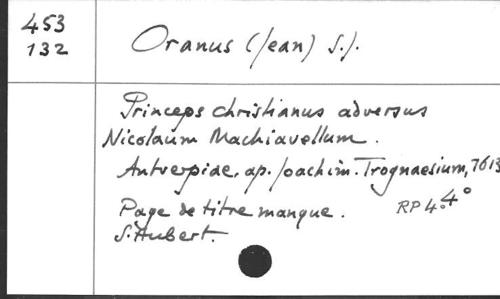 453
132
Oranus (Jean) S.J.
Princeps christianus adversus
Nicolaum Machiavellum.
Antverpiae. ap. Joachim. Trognaesium, 1613
Page de titre manque.
RP 4. 4°
S. Aubert.